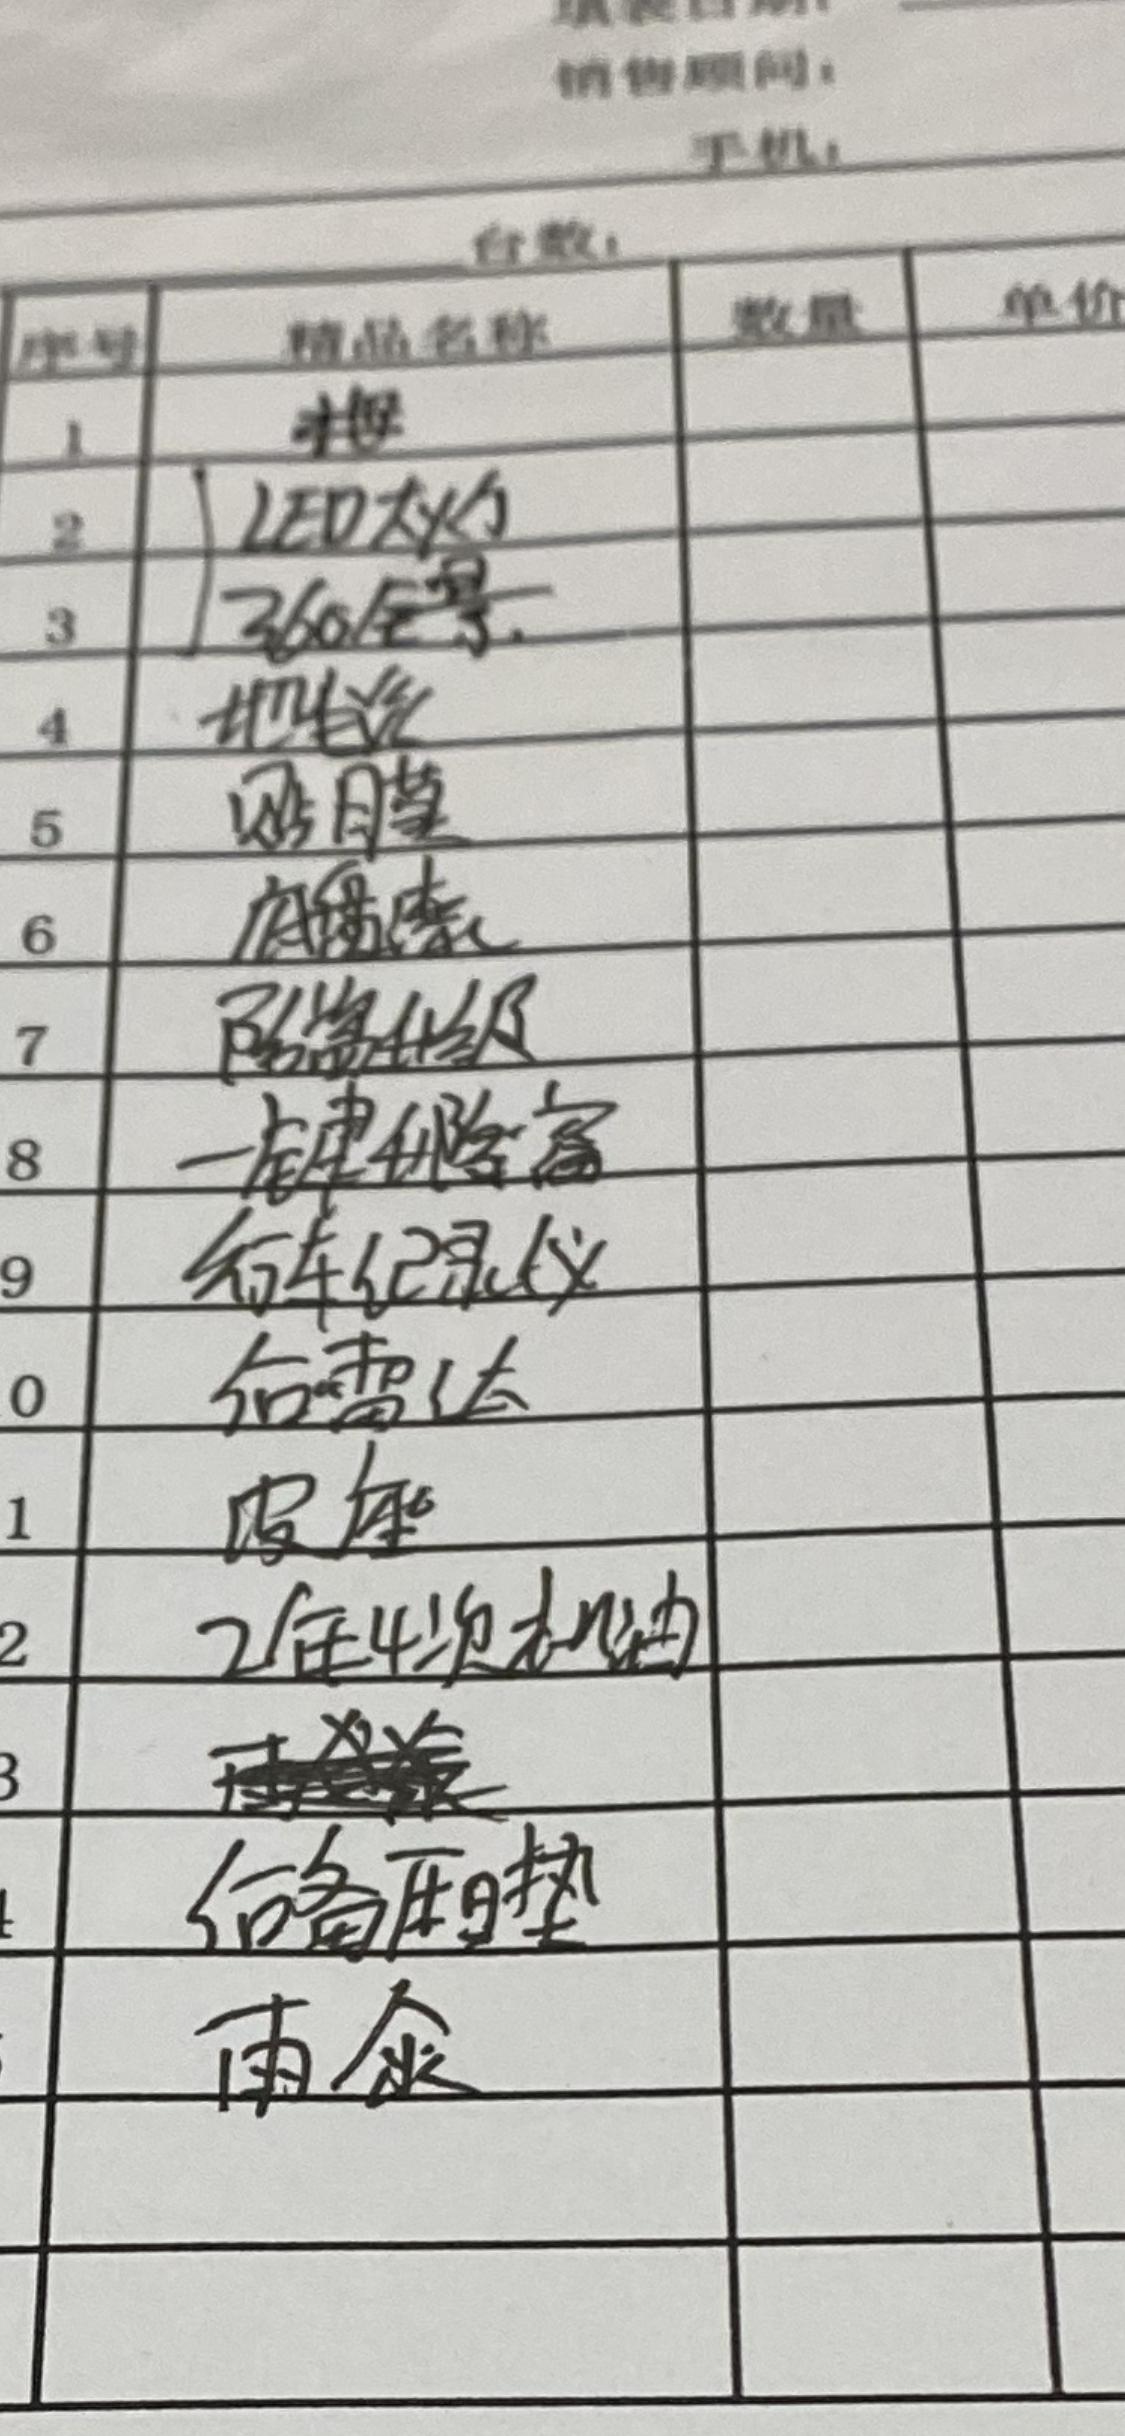 销售顾问:
手机:
台数:
序号 精品名称 数量 单价
1
2 LED大灯
3 360全景
4 地毯
5 贴膜
6 底盘
7 防盗升级
8 一键升降窗
9 行车记录仪
0 后雷达
1 皮座
2 2年4次机油
3
4 后备厢垫
雨伞